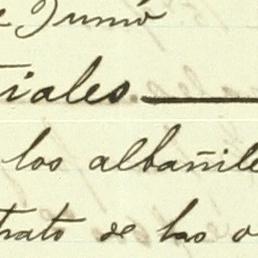 e Junio
iales.
los albañile
trato de las o